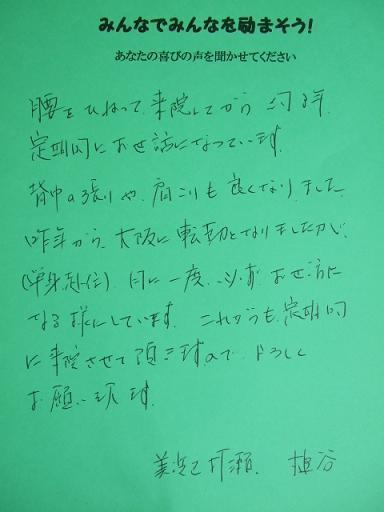 みんなでみんなを励まそう!
あなたの喜びの声を聞かせてください
腰をひねって、来院してから 約3年
定期的にお世話になっています。
背中の張りや、肩こりも良くなりました。
昨年から、大阪に転勤となりましたが、
(単身赴任) 月に一度、必ず お世話に
なる様にしています。これからも、定期的
に来院させて頂きますので よろしく
お願い致します。
美浜区 打瀬